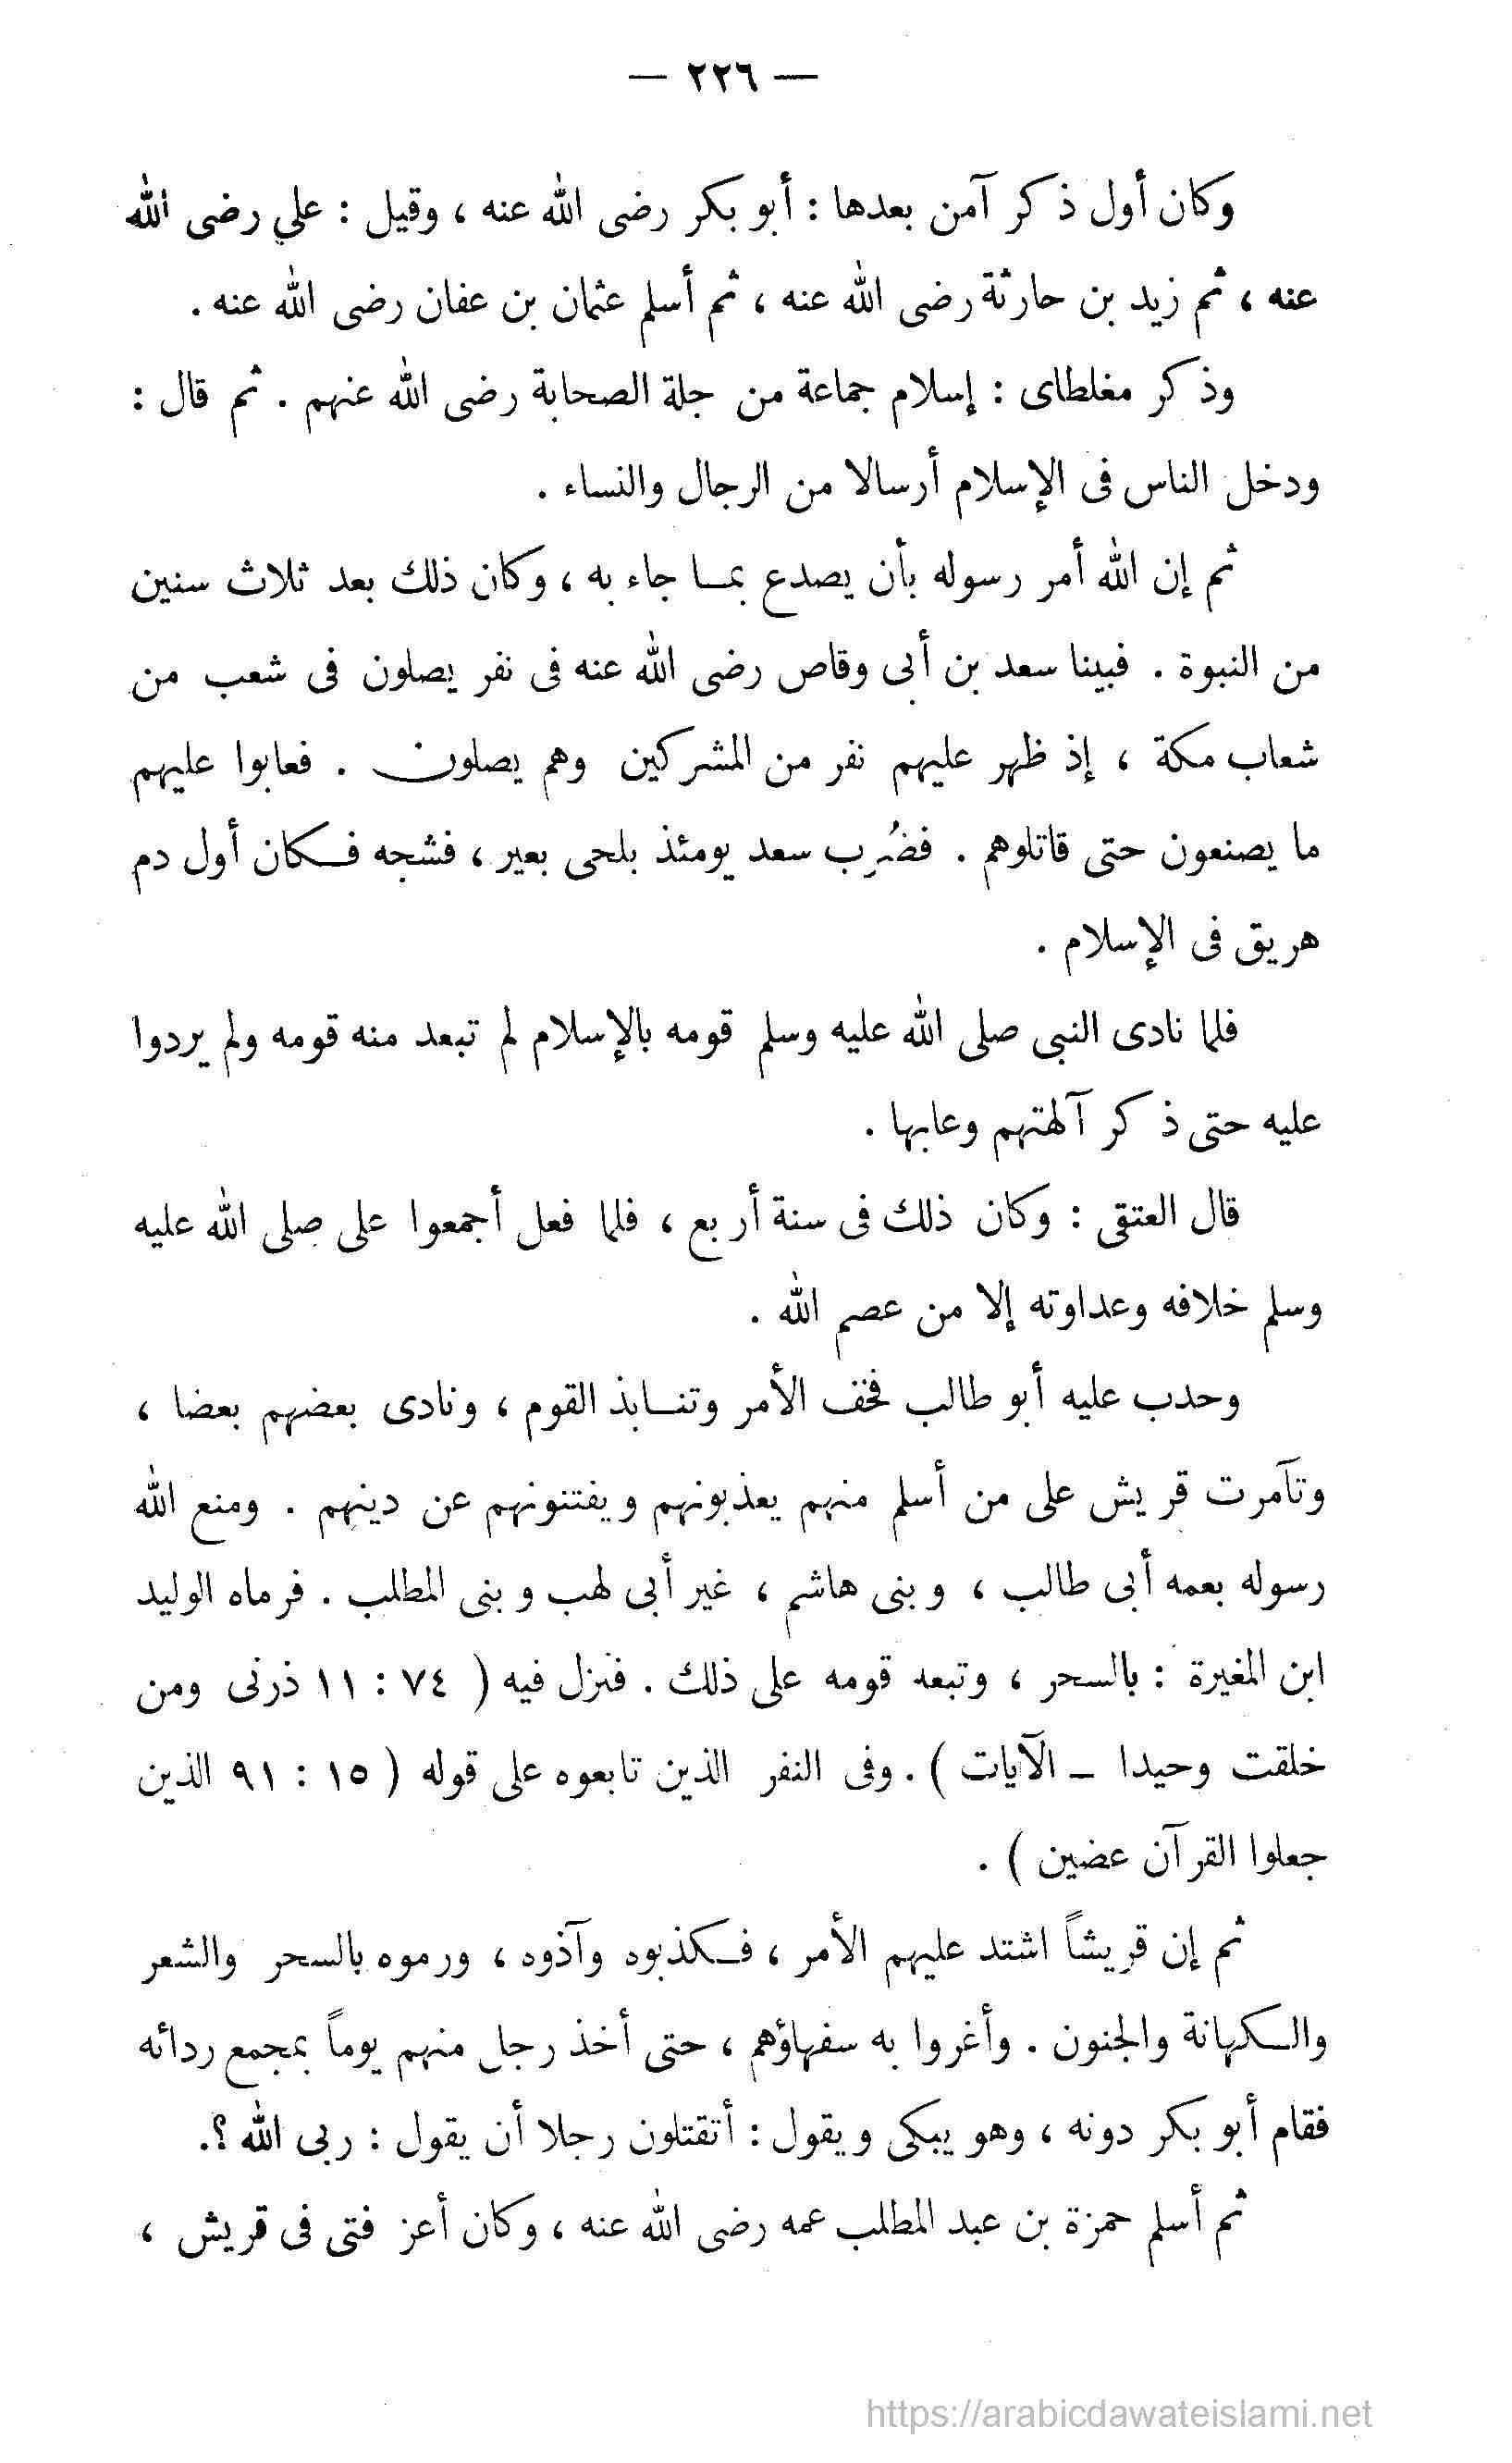 — ٢٢٦ —
وكان أول ذكر آمن بعدها : أبو بكر رضى الله عنه ، وقيل : علي رضى الله
عنه ، ثم زيد بن حارثة رضى الله عنه ، ثم أسلم عثمان بن عفان رضى الله عنه .
وذكر مغلطاى : إسلام جماعة من جلة الصحابة رضى الله عنهم . ثم قال :
ودخل الناس فى الإسلام أرسالا من الرجال والنساء .
ثم إن الله أمر رسوله بأن يصدع بمـا جاء به ، وكان ذلك بعد ثلاث سنين
من النبوة . فبينا سعد بن أبى وقاص رضى الله عنه فى نفر يصلون فى شعب من
شعاب مكة ، إذ ظهر عليهم نفر من المشركين وهم يصلون . فعابوا عليهم
ما يصنعون حتى قاتلوهم . فضُرِب سعد يومئذ بلحى بعير ، فشجه فـكان أول دم
هريق فى الإسلام .
فلما نادى النبى صلى الله عليه وسلم قومه بالإسلام لم تبعد منه قومه ولم يردوا
عليه حتى ذكر آلهتهم وعابها .
قال العتقى : وكان ذلك فى سنة أربع ، فلما فعل أجمعوا على صلى الله عليه
وسلم خلافه وعداوته إلا من عصم الله .
وحدب عليه أبو طالب فخف الأمر وتنـابذ القوم ، ونادى بعضهم بعضا ،
وتآمرت قريش على من أسلم منهم يعذبونهم ويفتنونهم عن دينهم . ومنع الله
رسوله بعمه أبى طالب ، وبنى هاشم ، غير أبى لهب وبنى المطلب . فرماه الوليد
ابن المغيرة : بالسحر ، وتبعه قومه على ذلك . فنزل فيه ( ٧٤ : ١١ ذرنى ومن
خلقت وحيدا ــ الآيات ) . وفى النفر الذين تابعوه على قوله ( ١٥ : ٩١ الذين
جعلوا القرآن عضين ) .
ثم إن قريشاً اشتد عليهم الأمر ، فـكذبوه وآذوه ، ورموه بالسحر والشعر
والـكهانة والجنون . وأغروا به سفهاؤهم ، حتى أخذ رجل منهم يوماً بمجمع ردائه
فقام أبو بكر دونه ، وهو يبكى ويقول : أتقتلون رجلا أن يقول : ربى الله ؟.
ثم أسلم حمزة بن عبد المطلب عمه رضى الله عنه ، وكان أعز فتى فى قريش ،
https://arabicdawateislami.net